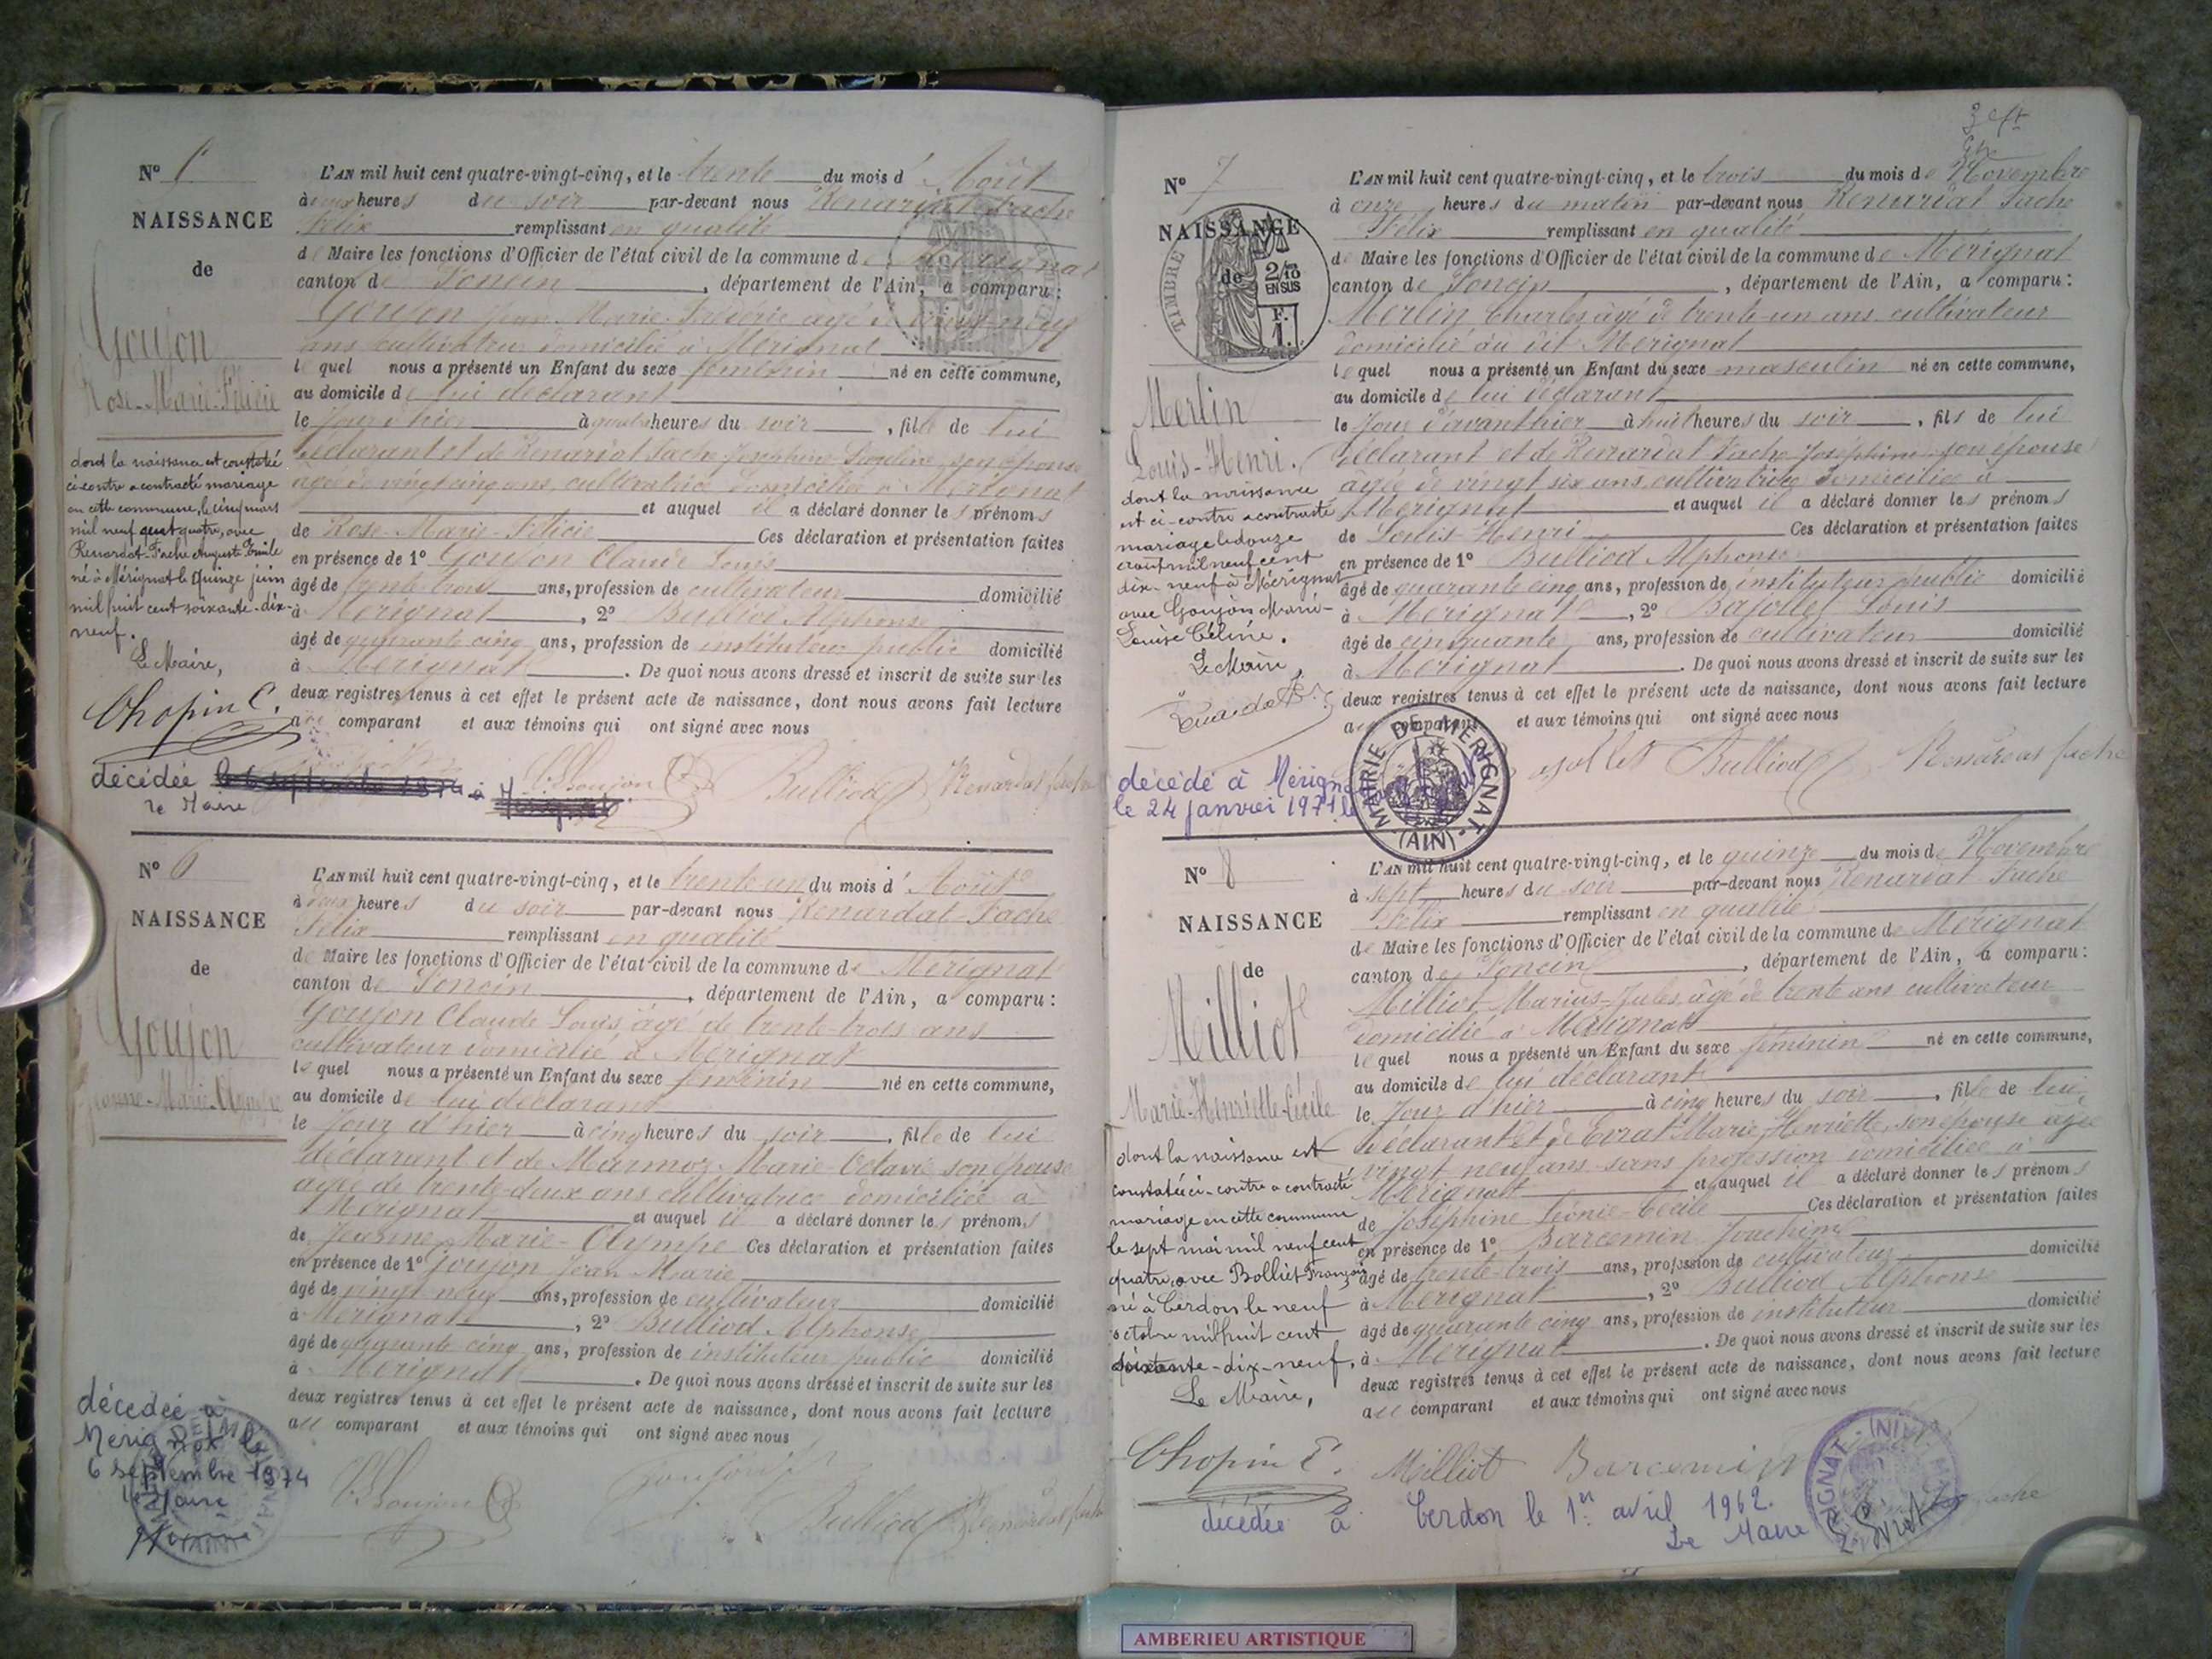 N° 5
NAISSANCE
de
Goujon
Rose-Marie-Félicie
dont la naissance est constatée
ci-contre a contracté mariage
en cette commune, le cinq mars
mil neuf cent quatre, avec
Renardat-Fache Auguste Emile
né à Mérignat le quinze juin
mil huit cent soixante-dix-
neuf.
Le Maire,
Chopin C.
L'AN mil huit cent quatre-vingt-cinq, et le trente du mois d' Août
à deux heures du soir par-devant nous Renardat-Fache
Félix remplissant en qualité
de Maire les fonctions d'Officier de l'état civil de la commune de Mérignat
canton de Poncin, département de l'Ain, a comparu :
Goujon Jean-Marie-Frédéric âgé de vingt-neuf
ans cultivateur domicilié à Mérignat
lequel nous a présenté un Enfant du sexe féminin né en cette commune,
au domicile de lui déclarant
le jour d'hier à quatre heures du soir, fille de lui
déclarant et de Renardat-Fache Joséphine son épouse
âgée de vingt cinq ans, cultivatrice domiciliée à Mérignat
et auquel il a déclaré donner les prénoms
de Rose-Marie-Félicie Ces déclaration et présentation faites
en présence de 1° Goujon Claude Louis
âgé de trente-trois ans, profession de cultivateur domicilié
à Mérignat, 2° Bulliod Alphonse
âgé de quarante cinq ans, profession de instituteur public domicilié
à Mérignat. De quoi nous avons dressé et inscrit de suite sur les
deux registres tenus à cet effet le présent acte de naissance, dont nous avons fait lecture
au comparant et aux témoins qui ont signé avec nous
Goujon Bulliod Renardat fache
décédée le 6 septembre 1974 à Mérignat
le Maire
N° 6
NAISSANCE
de
Goujon
Jeanne-Marie-Olympe
L'AN mil huit cent quatre-vingt-cinq, et le trente un du mois d' Août
à deux heures du soir par-devant nous Renardat-Fache
Félix remplissant en qualité
de Maire les fonctions d'Officier de l'état civil de la commune de Mérignat
canton de Poncin, département de l'Ain, a comparu :
Goujon Claude Louis âgé de trente-trois ans
cultivateur domicilié à Mérignat
lequel nous a présenté un Enfant du sexe féminin né en cette commune,
au domicile de lui déclarant
le jour d'hier à cinq heures du soir, fille de lui
déclarant et de Marmoz Marie-Octavie son épouse
âgée de trente-deux ans cultivatrice domiciliée à
Mérignat et auquel il a déclaré donner les prénoms
de Jeanne-Marie-Olympe Ces déclaration et présentation faites
en présence de 1° Goujon Jean Marie
âgé de vingt neuf ans, profession de cultivateur domicilié
à Mérignat, 2° Bulliod Alphonse
âgé de quarante cinq ans, profession de instituteur public domicilié
à Mérignat. De quoi nous avons dressé et inscrit de suite sur les
deux registres tenus à cet effet le présent acte de naissance, dont nous avons fait lecture
au comparant et aux témoins qui ont signé avec nous
décédée à
Merignat le
6 septembre 1974
le Maire
Goujon Bulliod Renardat fache
N° 7
NAISSANCE
de
TIMBRE
2/10
EN SUS
F.
1.
Merlin
Louis-Henri.
dont la naissance
est ci-contre a contracté
mariage le douze
août mil neuf cent
dix-neuf à Mérignat
avec Goujon Marie-
Louise Céline.
Le Maire,
L'AN mil huit cent quatre-vingt-cinq, et le trois du mois de Novembre
à onze heures du matin par-devant nous Renardat Fache
Félix remplissant en qualité
de Maire les fonctions d'Officier de l'état civil de la commune de Mérignat
canton de Poncin, département de l'Ain, a comparu :
Merlin Charles âgé de trente-un ans cultivateur
domicilié au dit Mérignat
lequel nous a présenté un Enfant du sexe masculin né en cette commune,
au domicile de lui déclarant
le jour d'avant hier à huit heures du soir, fils de lui
déclarant et de Renardat Fache Joséphine son épouse
âgée de vingt six ans cultivatrice domiciliée à
Mérignat et auquel il a déclaré donner les prénoms
de Louis-Henri Ces déclaration et présentation faites
en présence de 1° Bulliod Alphonse
âgé de quarante cinq ans, profession de instituteur public domicilié
à Mérignat, 2° Bajollet Louis
âgé de cinquante ans, profession de cultivateur domicilié
à Mérignat. De quoi nous avons dressé et inscrit de suite sur les
deux registres tenus à cet effet le présent acte de naissance, dont nous avons fait lecture
au comparant et aux témoins qui ont signé avec nous
Bulliod Renardat fache
décédé à Mérignat
le 24 janvier 1971
MAIRIE DE MERIGNAT
(AIN)
N° 8
NAISSANCE
de
Milliot
Marie-Henriette-Cécile
dont la naissance est
constatée ci-contre a contracté
mariage en cette commune
le sept mai mil neuf cent
quatre, avec Bolliet François
né à Cerdon le neuf
octobre mil huit cent
soixante-dix-neuf.
Le Maire,
Chopin C.
L'AN mil huit cent quatre-vingt-cinq, et le quinze du mois de Novembre
à sept heures du soir par-devant nous Renardat-Fache
Félix remplissant en qualité
de Maire les fonctions d'Officier de l'état civil de la commune de Mérignat
canton de Poncin, département de l'Ain, a comparu :
Milliot Marius-Jules, âgé de trente ans cultivateur
domicilié à Mérignat
lequel nous a présenté un Enfant du sexe féminin né en cette commune,
au domicile de lui déclarant
le jour d'hier à cinq heures du soir, fille de lui
déclarant et de Evrat Marie Henriette, son épouse âgée
vingt neuf ans sans profession domiciliée à
Mérignat et auquel il a déclaré donner les prénoms
de Joséphine Léonie-Cécile Ces déclaration et présentation faites
en présence de 1° Barcemin Joachim
âgé de trente-trois ans, profession de cultivateur domicilié
à Mérignat, 2° Bulliod Alphonse
âgé de quarante cinq ans, profession de instituteur domicilié
à Mérignat. De quoi nous avons dressé et inscrit de suite sur les
deux registres tenus à cet effet le présent acte de naissance, dont nous avons fait lecture
au comparant et aux témoins qui ont signé avec nous
Milliot Barcemin
décédée à Cerdon le 1er avril 1962.
Le Maire
AMBERIEU ARTISTIQUE